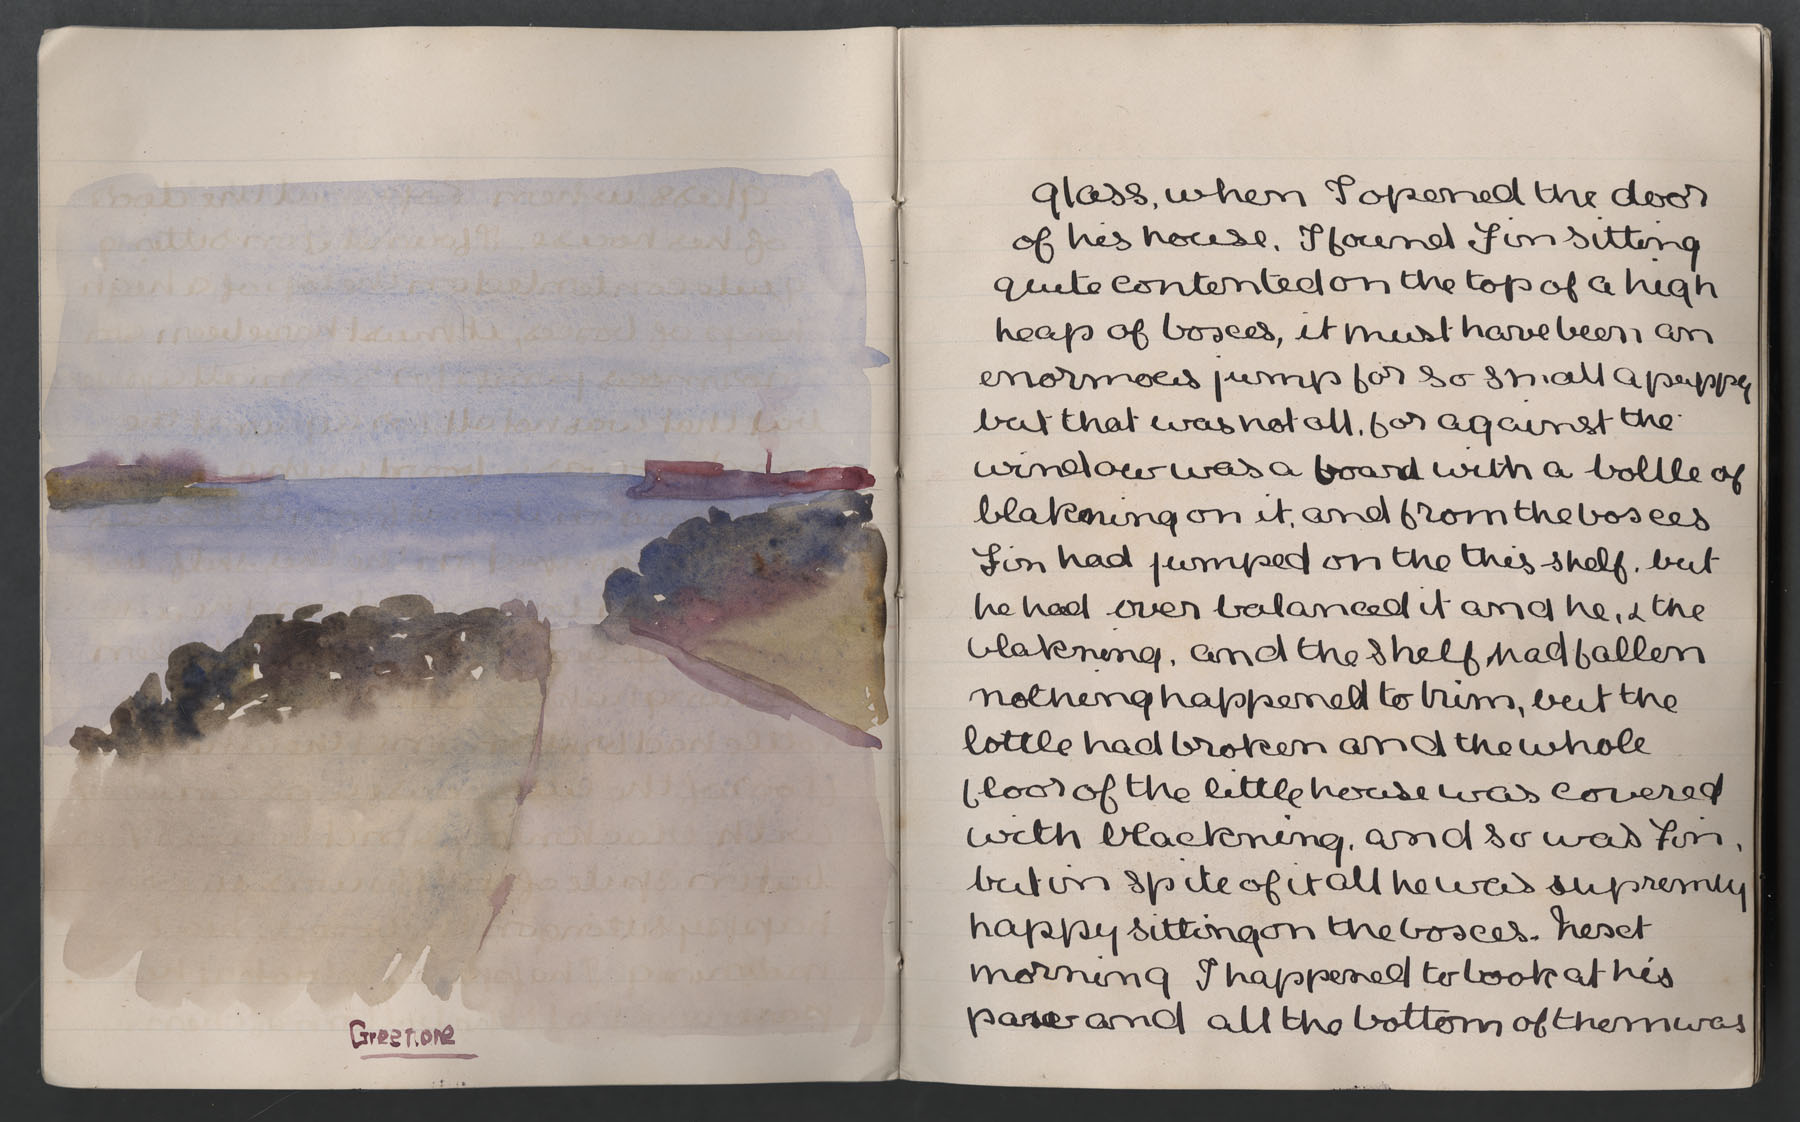 Greestone
glass, when I opened the door
of his house, I found Fin sitting
quite contented on the top of a high
heap of bosces, it must have been an
enormous jump for so small a puppy
but that was not all, for against the
window was a board with a bottle of
blakning on it, and from the bosces
Fin had jumped on the this shelf, but
he had over balanced it and he, & the
blakning, and the shelf, had fallen
nothing happened to him, but the
bottle had broken and the whole
floor of the little house was covered
with blackning, and so was Fin,
but in spite of it all he was supremly
happy sitting on the bosces. Nesct
morning I happened to look at his
paws and all the bottom of them was